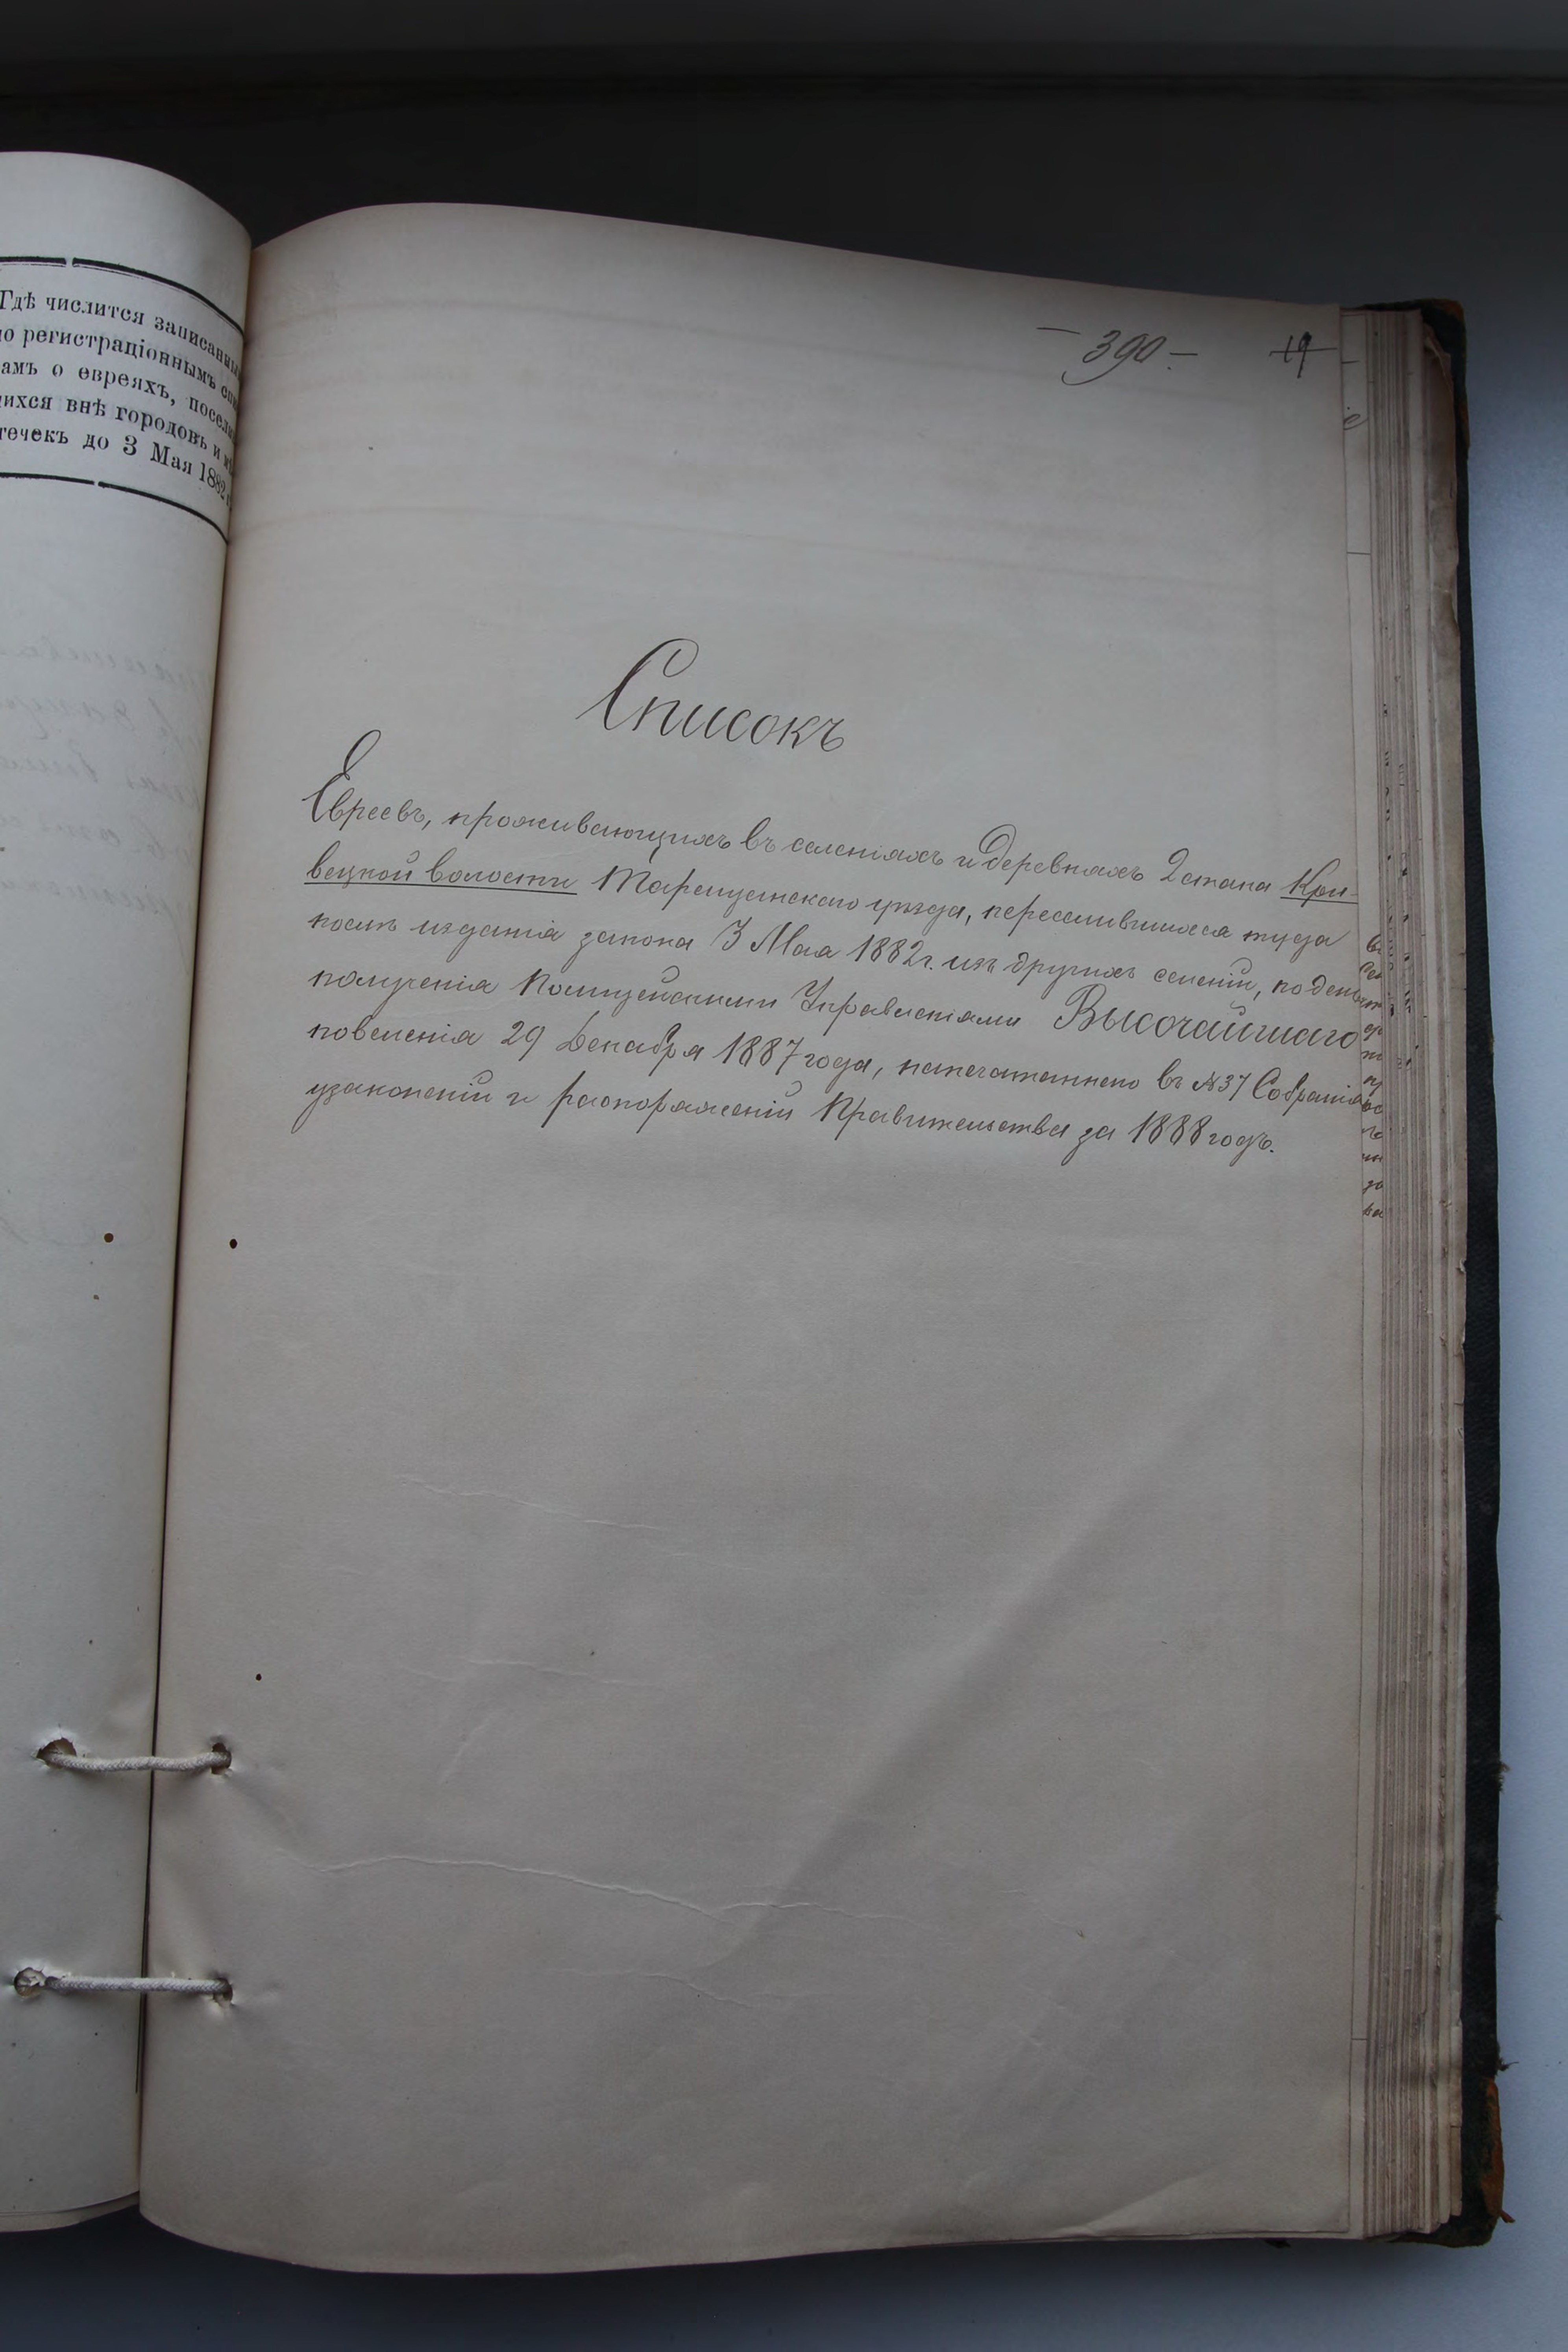 Гдѣ числится записанны
о регистраціоннымъ спи
амъ о евреяхъ, посели
ихся внѣ городовъ и м
течекъ до 3 Мая 1882 г.
— 390. —
19
Списокъ
Евреевъ, проживающихъ въ селеніяхъ и деревняхъ 2 стана Кри-
вецкой волости Таращанскаго уѣзда, переселившихся туда
послѣ изданія закона 3 Мая 1882 г. изъ другихъ селеній, по день
полученія Полицейскими Управленіями Высочайшаго
повеленія 29 Декабря 1887 года, напечатаннаго въ № 37 Собранія
узаконеній и распоряженій Правительства за 1888 годъ.